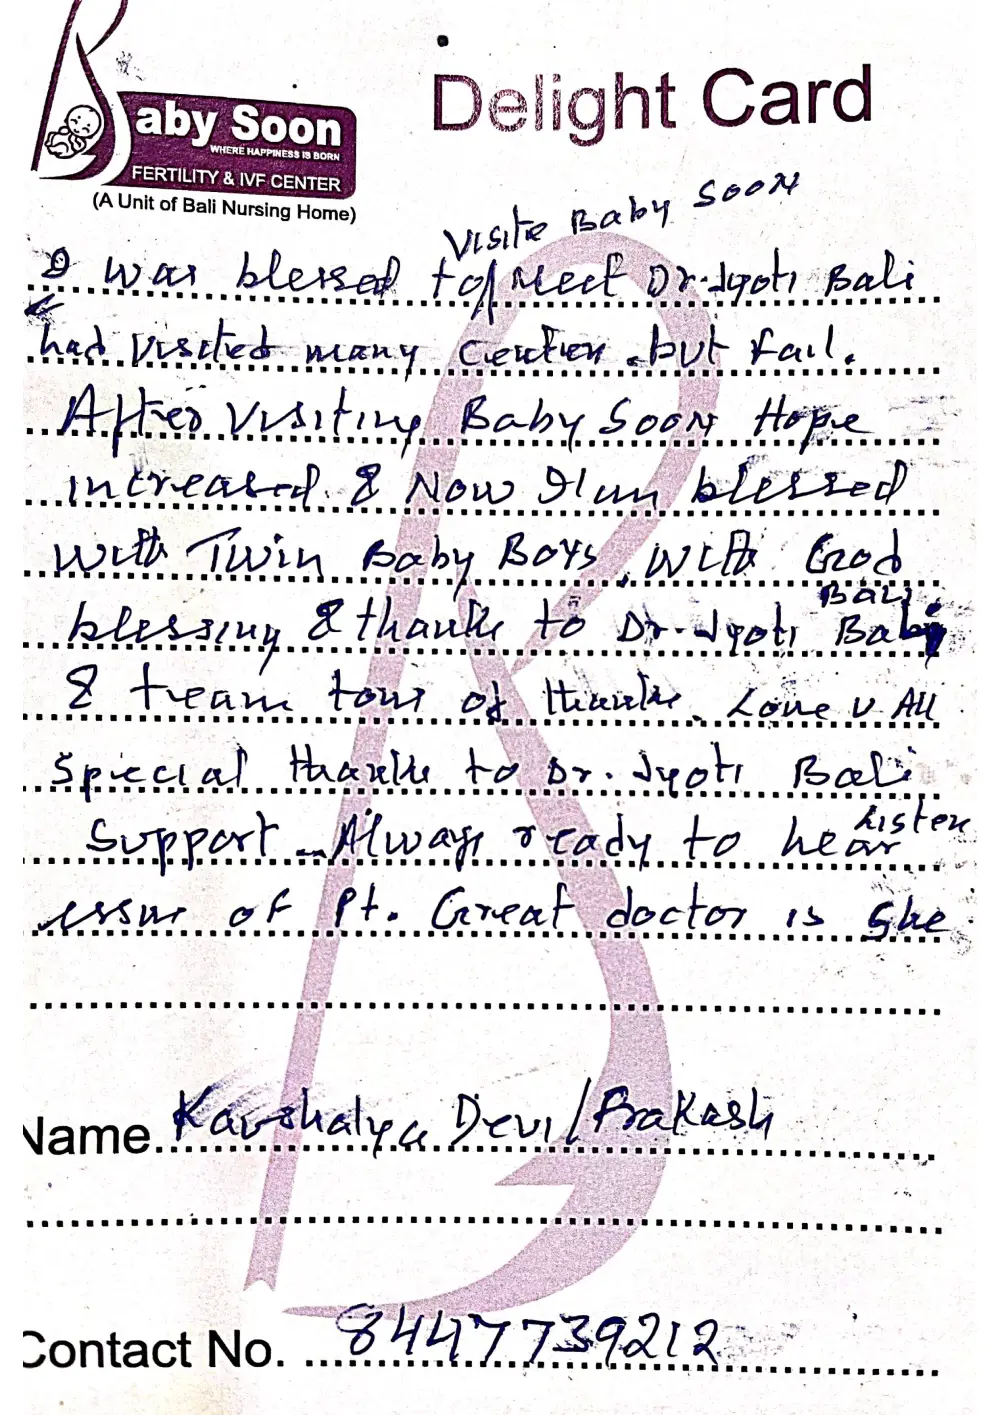 Baby Soon
WHERE HAPPINESS IS BORN
FERTILITY & IVF CENTER
(A Unit of Bali Nursing Home)
Delight Card
Visite Baby Soon
I was blessed to/ Meet Dr. Jyoti Bali
had Visited many Center. but fail.
After Visiting Baby Soon Hope
increased. & Now I'am blessed
with Twin Baby Boys, With God
Bali.
blessing & thanks to Dr. Jyoti
& team tons of thanks. Love U All
Special thanks to Dr. Jyoti Bali
Support - Always ready to hear Listen
issue of Pt. Great doctor is She
Name Kaushalya Devi/Prakash
Contact No. 8447739212